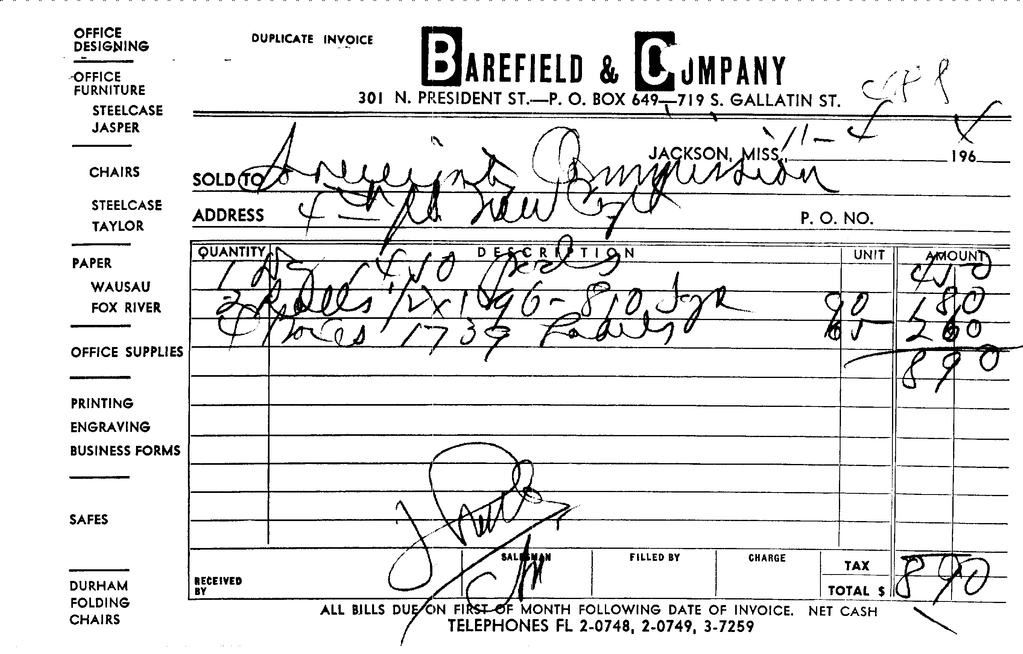 OFFICE DESIGNING
DUPLICATE INVOICE
BAREFIELD & COMPANY
301 N. PRESIDENT ST.—P. O. BOX 649—719 S. GALLATIN ST.
OFFICE FURNITURE
STEELCASE
JASPER
CHAIRS
STEELCASE
TAYLOR
PAPER
WAUSAU
FOX RIVER
OFFICE SUPPLIES
PRINTING
ENGRAVING
BUSINESS FORMS
SAFES
DURHAM FOLDING CHAIRS
JACKSON, MISS., 11-4 196
SOLD TO Sovereignty Commission
ADDRESS
P. O. NO.
QUANTITY DESCRIPTION UNIT AMOUNT
1 410 450
2 Rolls 1/2 x 1296-810 90 180
4 Boxes 1739 Labels 65 260
890
RECEIVED BY
SALESMAN
FILLED BY
CHARGE
TAX
TOTAL $ 890
ALL BILLS DUE ON FIRST OF MONTH FOLLOWING DATE OF INVOICE. NET CASH
TELEPHONES FL 2-0748, 2-0749, 3-7259